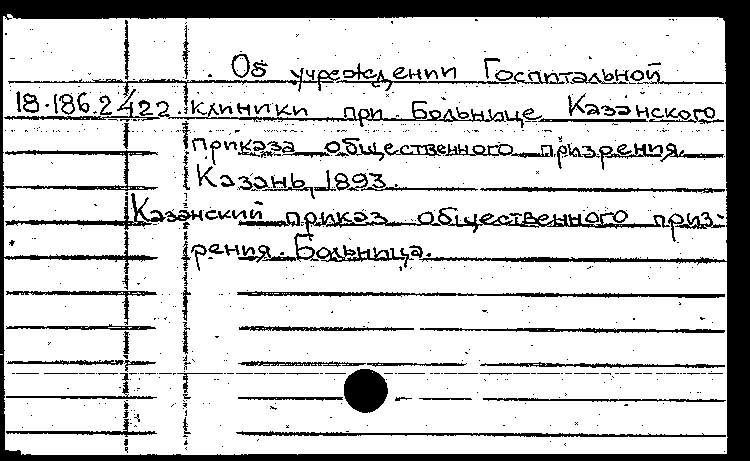 Об учреждении Госпитальной
18.186.2.422. клиники при Больнице Казанского
приказа общественного призрения.
Казань, 1893.
Казанский приказ общественного приз-
рения. Больница.